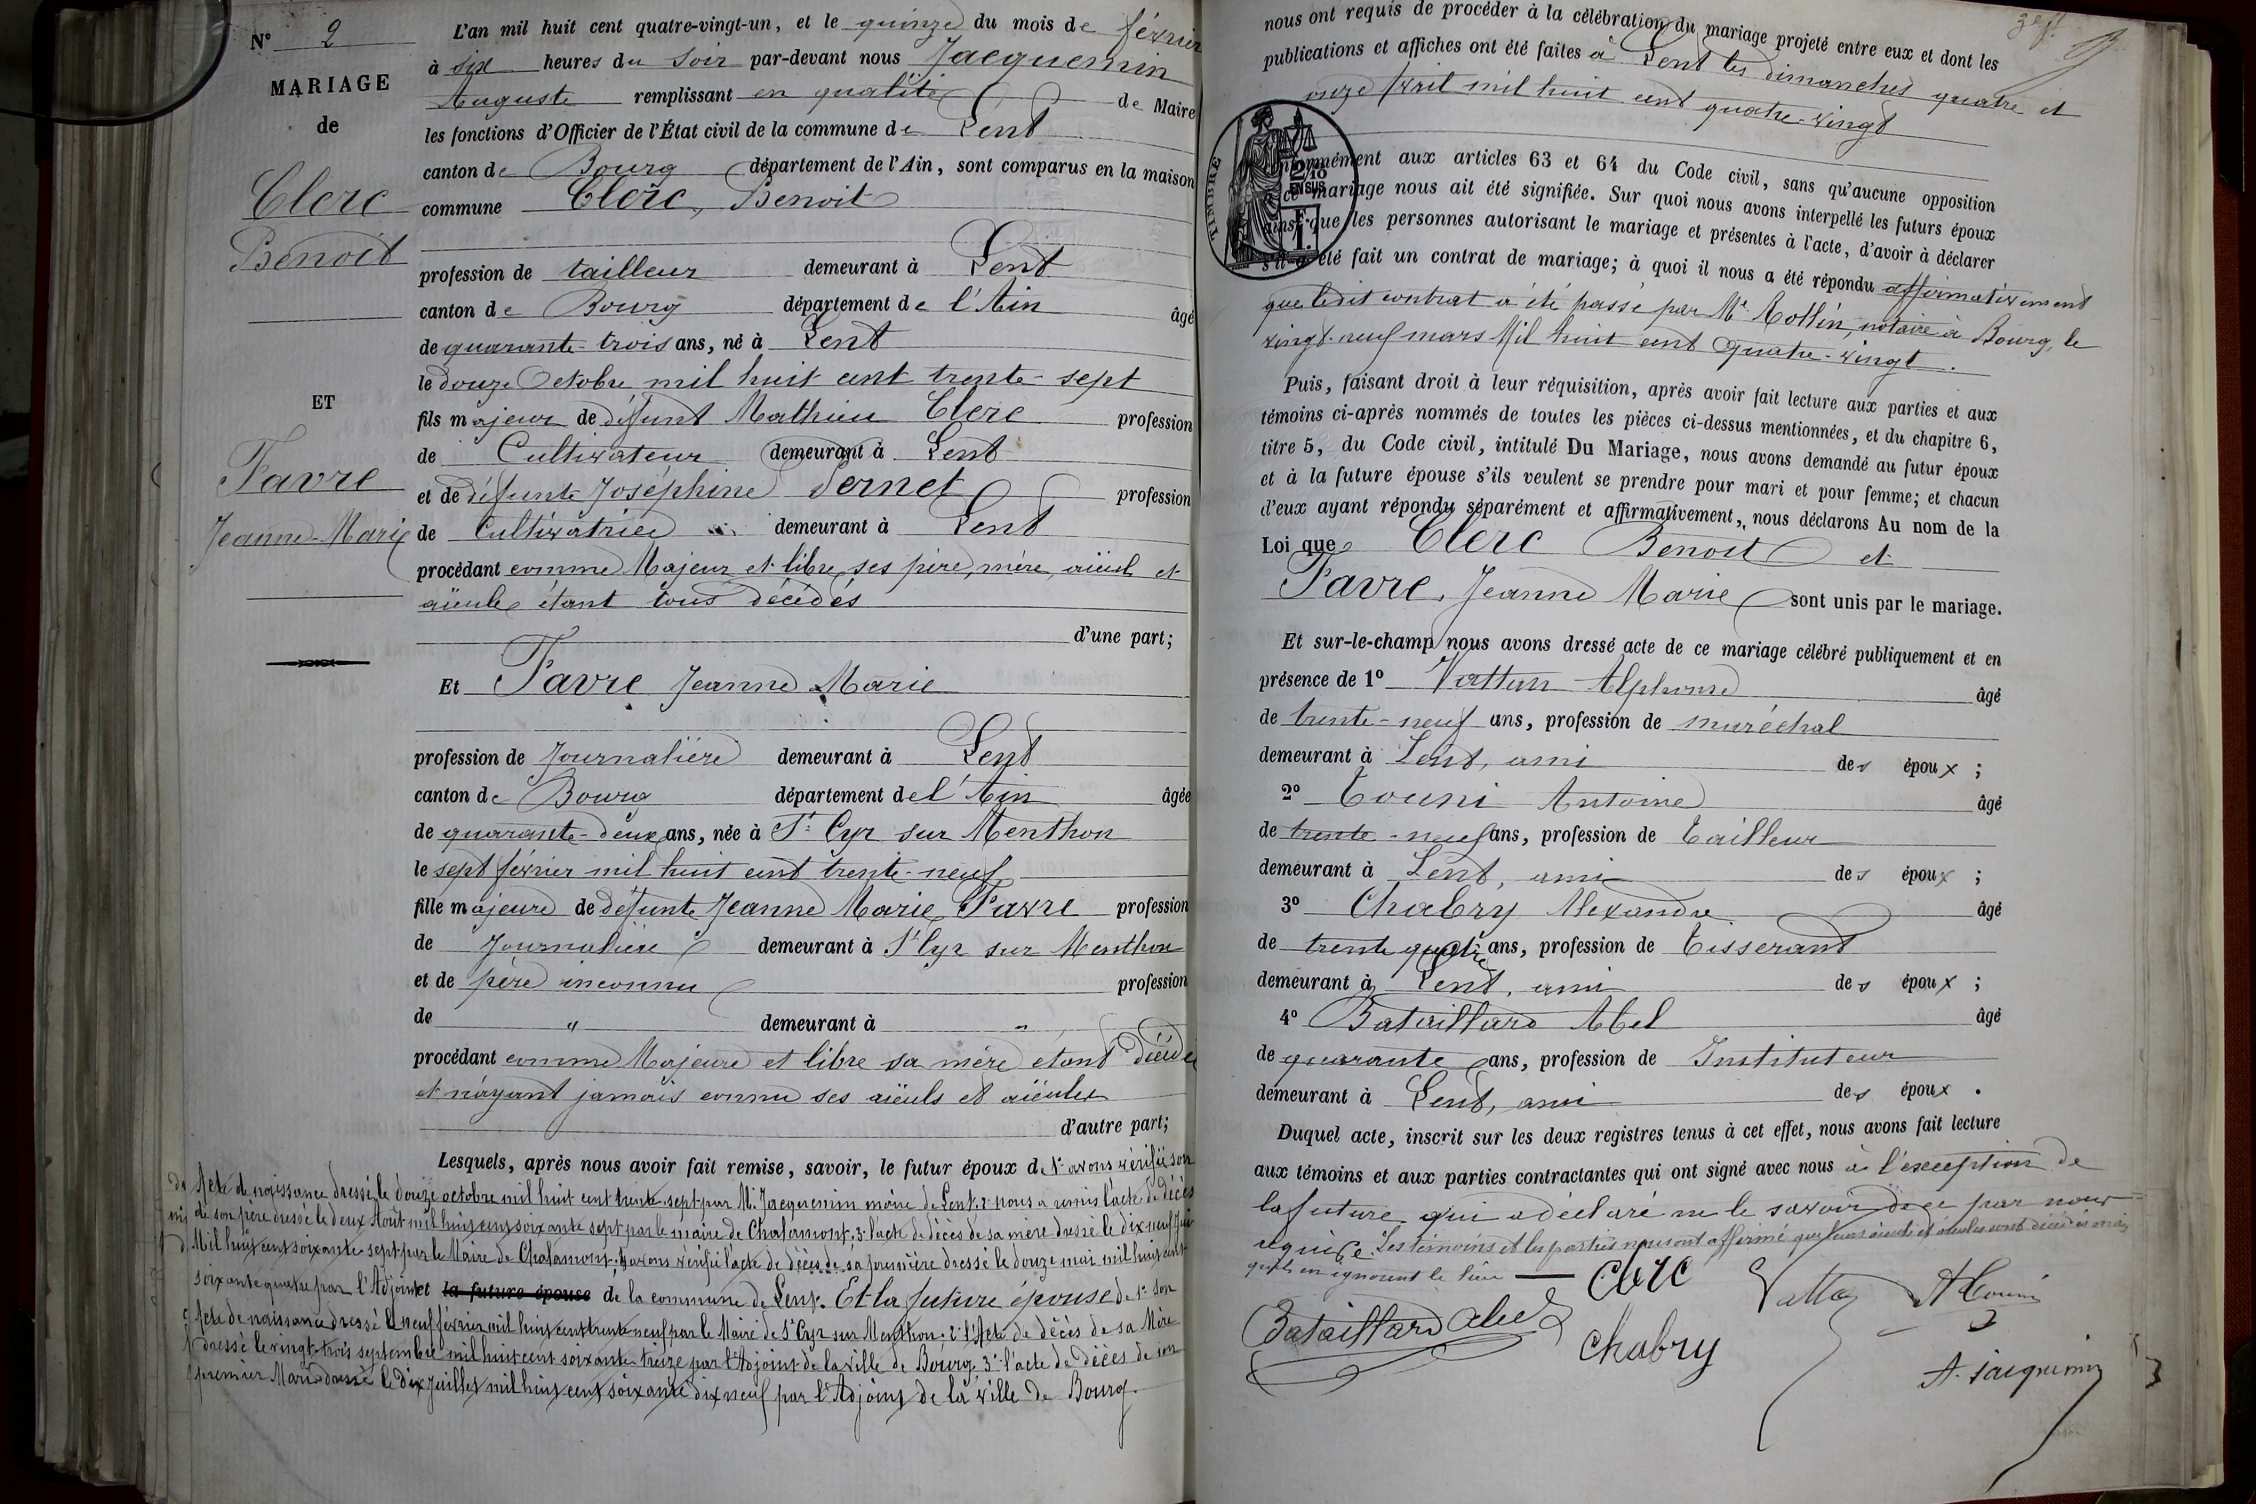 N° 2
MARIAGE
de
Clerc
Benoit
ET
Favre
Jeanne-Marie
L'an mil huit cent quatre-vingt-un, et le quinze du mois de février
à six heures du soir par-devant nous Jacquemin
Auguste remplissant en qualité de Maire
les fonctions d'Officier de l'État civil de la commune de Lent
canton de Bourg département de l'Ain, sont comparus en la maison
commune Clerc, Benoit
profession de tailleur demeurant à Lent
canton de Bourg département de l'Ain âgé
de quarante-trois ans, né à Lent
le douze Octobre mil huit cent trente-sept
fils majeur de défunt Mathieu Clerc profession
de Cultivateur demeurant à Lent
et de défunte Joséphine Sernet profession
de Cultivatrice demeurant à Lent
procédant comme Majeur et libre, ses père, mère, aïeul et
aïeule étant tous décédés
d'une part;
Et Favre Jeanne Marie
profession de Journalière demeurant à Lent
canton de Bourg département de l'Ain âgée
de quarante-deux ans, née à St Cyr sur Menthon
le sept février mil huit cent trente-neuf
fille majeure de défunte Jeanne Marie Favre profession
de Journalière demeurant à St Cyr sur Menthon
et de père inconnu profession
de " demeurant à "
procédant comme Majeure et libre sa mère étant décédée
et n'ayant jamais connu ses aïeuls et aïeules
d'autre part;
Lesquels, après nous avoir fait remise, savoir, le futur époux de 1° avons vérifié son
Acte de naissance dressé le douze octobre mil huit cent trente-sept par Mr Jacquemin maire de Lent. 2° nous a remis l'acte de décès
de son père dressé le deux Août mil huit cent soixante sept par le maire de Chalamont. 3° l'acte de décès de sa mère dressé le dix neuf Juin
Mil huit cent soixante-sept par le Maire de Chalamont. 4° avons vérifié l'acte de décès de sa première dressé le douze mai mil huit cent
soixante quatre par l'Adjoint et la future épouse de la commune de Lent. Et la future épouse de 1° son
Acte de naissance dressé le neuf février mil huit cent trente neuf par le Maire de St Cyr sur Menthon. 2° l'Acte de décès de sa Mère
dressé le vingt-trois septembre mil huit cent soixante treize par l'Adjoint de la ville de Bourg. 3° l'acte de décès de son
premier Mari dressé le dix Juillet mil huit cent soixante dix neuf par l'Adjoint de la ville de Bourg.
nous ont requis de procéder à la célébration du mariage projeté entre eux et dont les
publications et affiches ont été faites à Lent les dimanches quatre et
onze Avril mil huit cent quatre-vingt
conformément aux articles 63 et 64 du Code civil, sans qu'aucune opposition
à ce mariage nous ait été signifiée. Sur quoi nous avons interpellé les futurs époux
ainsi que les personnes autorisant le mariage et présentes à l'acte, d'avoir à déclarer
s'il a été fait un contrat de mariage; à quoi il nous a été répondu affirmativement
que ledit contrat a été passé par Me Rollin, notaire à Bourg, le
vingt-neuf mars Mil huit cent Quatre-vingt.
TIMBRE
2/10
EN SUS
1 F.
Puis, faisant droit à leur réquisition, après avoir fait lecture aux parties et aux
témoins ci-après nommés de toutes les pièces ci-dessus mentionnées, et du chapitre 6,
titre 5, du Code civil, intitulé Du Mariage, nous avons demandé au futur époux
et à la future épouse s'ils veulent se prendre pour mari et pour femme; et chacun
d'eux ayant répondu séparément et affirmativement, nous déclarons Au nom de la
Loi que Clerc Benoit et
Favre, Jeanne Marie sont unis par le mariage.
Et sur-le-champ nous avons dressé acte de ce mariage célébré publiquement et en
présence de 1° Alphonse âgé
de trente-neuf ans, profession de maréchal
demeurant à Lent, ami des époux ;
2° Touni Antoine âgé
de trente-neuf ans, profession de Tailleur
demeurant à Lent, ami des époux ;
3° Chabry Alexandre âgé
de trente quatre ans, profession de Tisserand
demeurant à Lent, ami des époux ;
4° Bataillard Abel âgé
de quarante ans, profession de Instituteur
demeurant à Lent, ami des époux .
Duquel acte, inscrit sur les deux registres tenus à cet effet, nous avons fait lecture
aux témoins et aux parties contractantes qui ont signé avec nous à l'exception de
la future qui a déclaré ne le savoir de ce par nous
requise. Les témoins et les parties nous ont affirmé que leurs aïeuls et aïeules sont décédés mais
qu'ils en ignorent le lieu
Clerc
Bataillard Abel
Chabry
A. Jacquemin